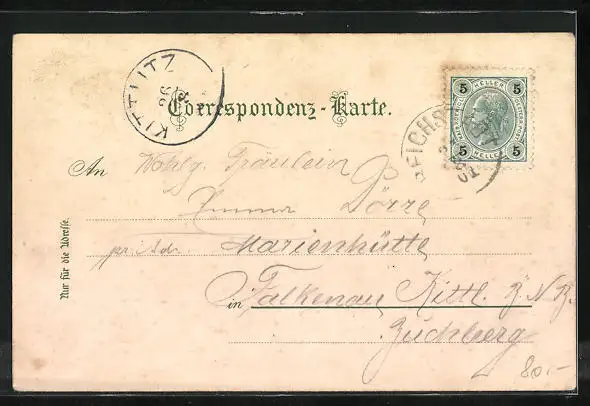 KITTLITZ
Correspondenz-Karte.
5 HELLER 5
5 HELLER 5
REICHS
01
An Wohlg. Fräulein
Emma Dörre
pr. Adr. Marienhütte
in Falkenau Kittl. B. N. B.
Nur für die Adresse.
80.-